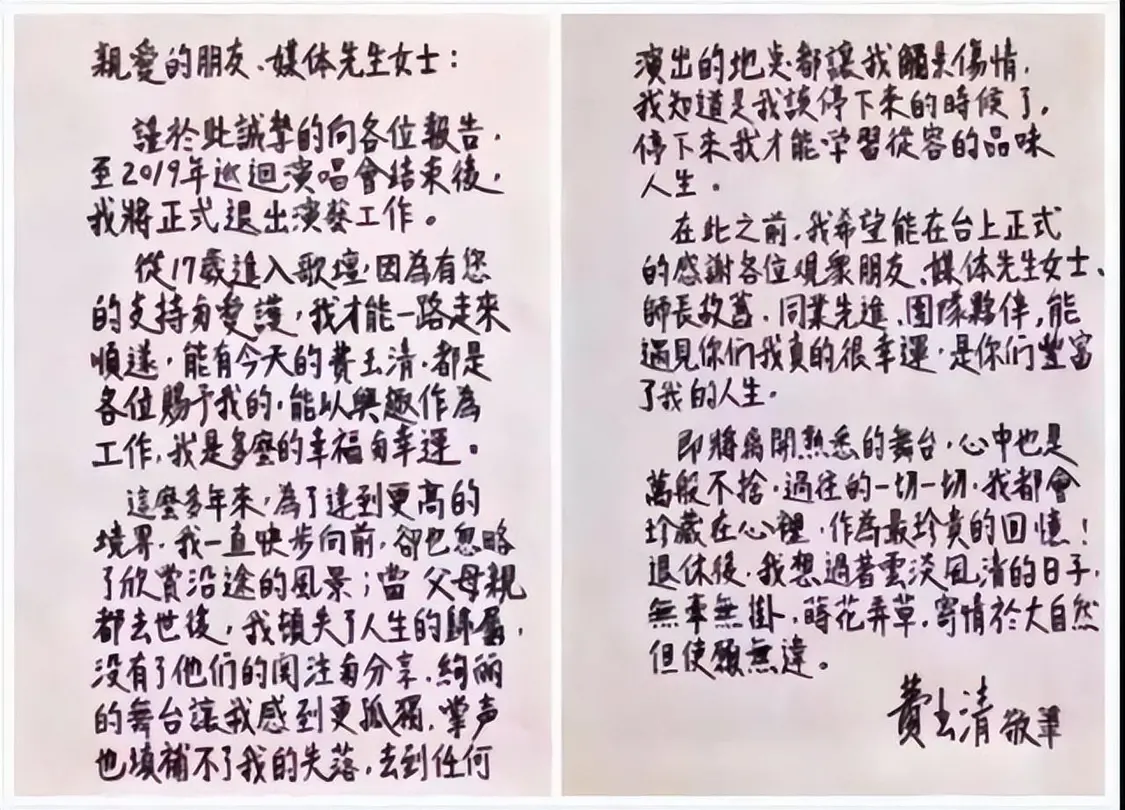 親愛的朋友、媒体先生女士：
謹於此誠摯的向各位報告，
至2019年巡迴演唱會结束後，
我將正式退出演藝工作。
從17歲進入歌壇，因為有您
的支持與愛護，我才能一路走來
順遂，能有今天的費玉清，都是
各位賜予我的，能以興趣作為
工作，我是多麼的幸福與幸運。
這麼多年來，為了達到更高的
境界，我一直快步向前，卻也忽略
了欣賞沿途的風景；當父母親
都去世後，我頓失了人生的歸屬，
沒有了他们的関注與分享，絢丽
的舞台讓我感到更孤獨，掌声
也填補不了我的失落，去到任何
演出的地点都讓我觸景傷情，
我知道是我該停下來的時候了，
停下來我才能学習從容的品味
人生。
在此之前，我希望能在台上正式
的感謝各位观眾朋友、媒体先生女士、
師長故舊、同業先進、團隊夥伴，能
遇見你们我真的很幸運，是你们豐富
了我的人生。
即將离開熟悉的舞台，心中也是
萬般不捨，過往的一切一切，我都會
珍藏在心裡，作為最珍貴的回憶！
退休後，我想過著雲淡風清的日子，
無牽無掛，蒔花弄草，寄情於大自然
但使願無違。
費玉清 敬筆